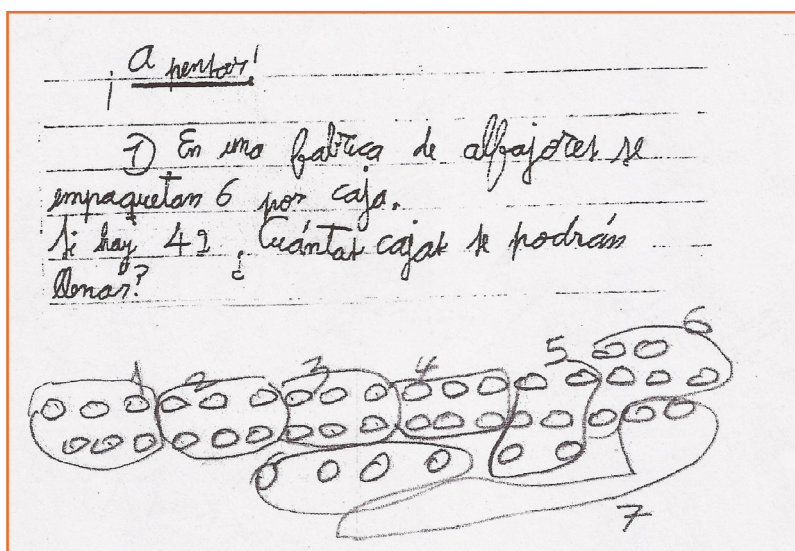 ¡A pensar!
1) En una fabrica de alfajores se
empaquetan 6 por caja.
Si hay 42 ¿Cuántas cajas se podrán
llenar?
1 2 3 4 5 6
7